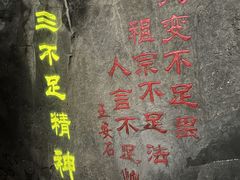 天变不足畏
祖宗不足法
人言不足恤
王安石
三不足精神